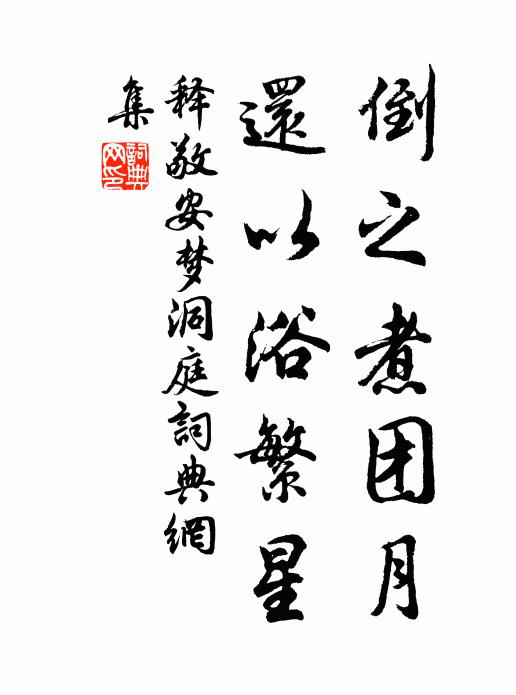 倒之煮团月
還以浴繁星
释敬安梦洞庭詞典網
集
詞典
网印